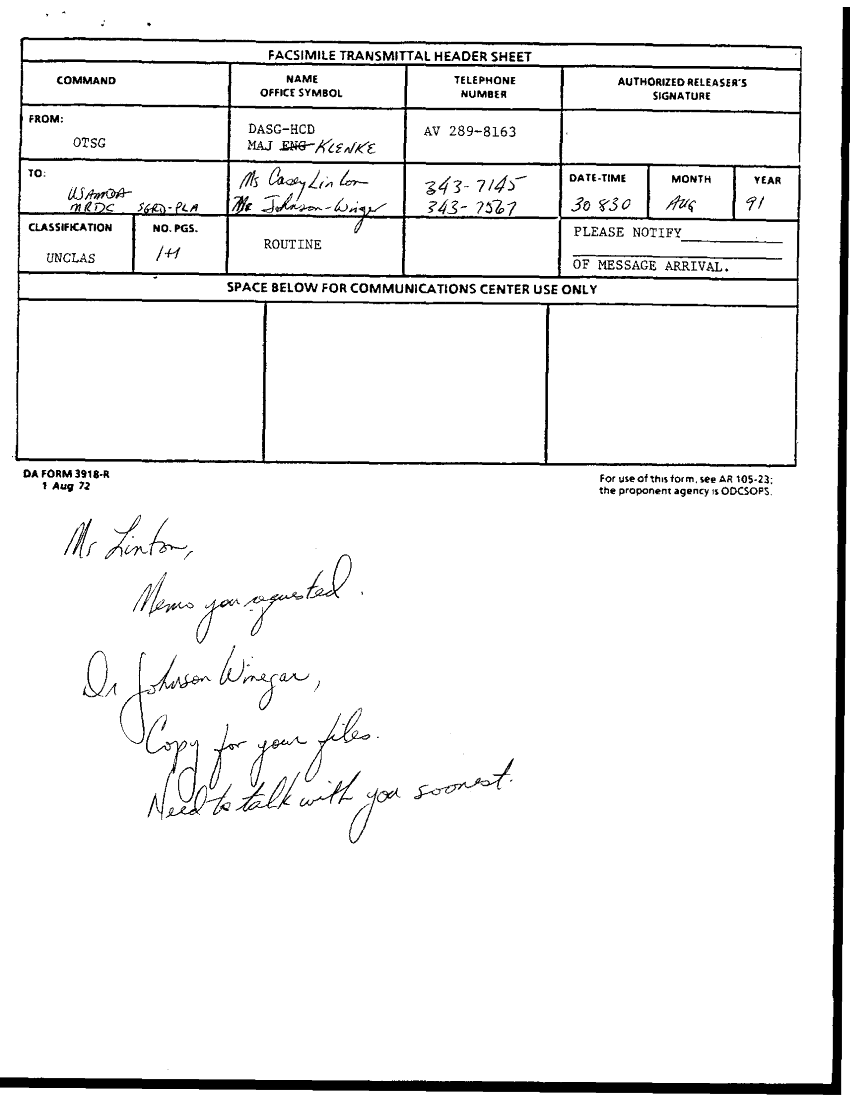 FACSIMILE TRANSMITTAL HEADER SHEET
COMMAND
NAME
OFFICE SYMBOL
TELEPHONE
NUMBER
AUTHORIZED RELEASER'S
SIGNATURE
FROM:
OTSG
DASG-HCD
MAJ ENG KLENKE
AV 289-8163
TO:
USAMDA
MRDC SGRD-PLA
Ms Casey Linton
Johnson-Winegar
343-7145
343-7567
DATE-TIME
30 830
MONTH
AUG
YEAR
91
CLASSIFICATION
UNCLAS
NO. PGS.
1+1
ROUTINE
PLEASE NOTIFY
OF MESSAGE ARRIVAL.
SPACE BELOW FOR COMMUNICATIONS CENTER USE ONLY
DA FORM 3918-R
1 Aug 72
For use of this form, see AR 105-23;
the proponent agency is ODCSOPS.
Ms Linton,
Memo you requested.
Dr Johnson Winegar,
Copy for your files.
Need to talk with you soonest.